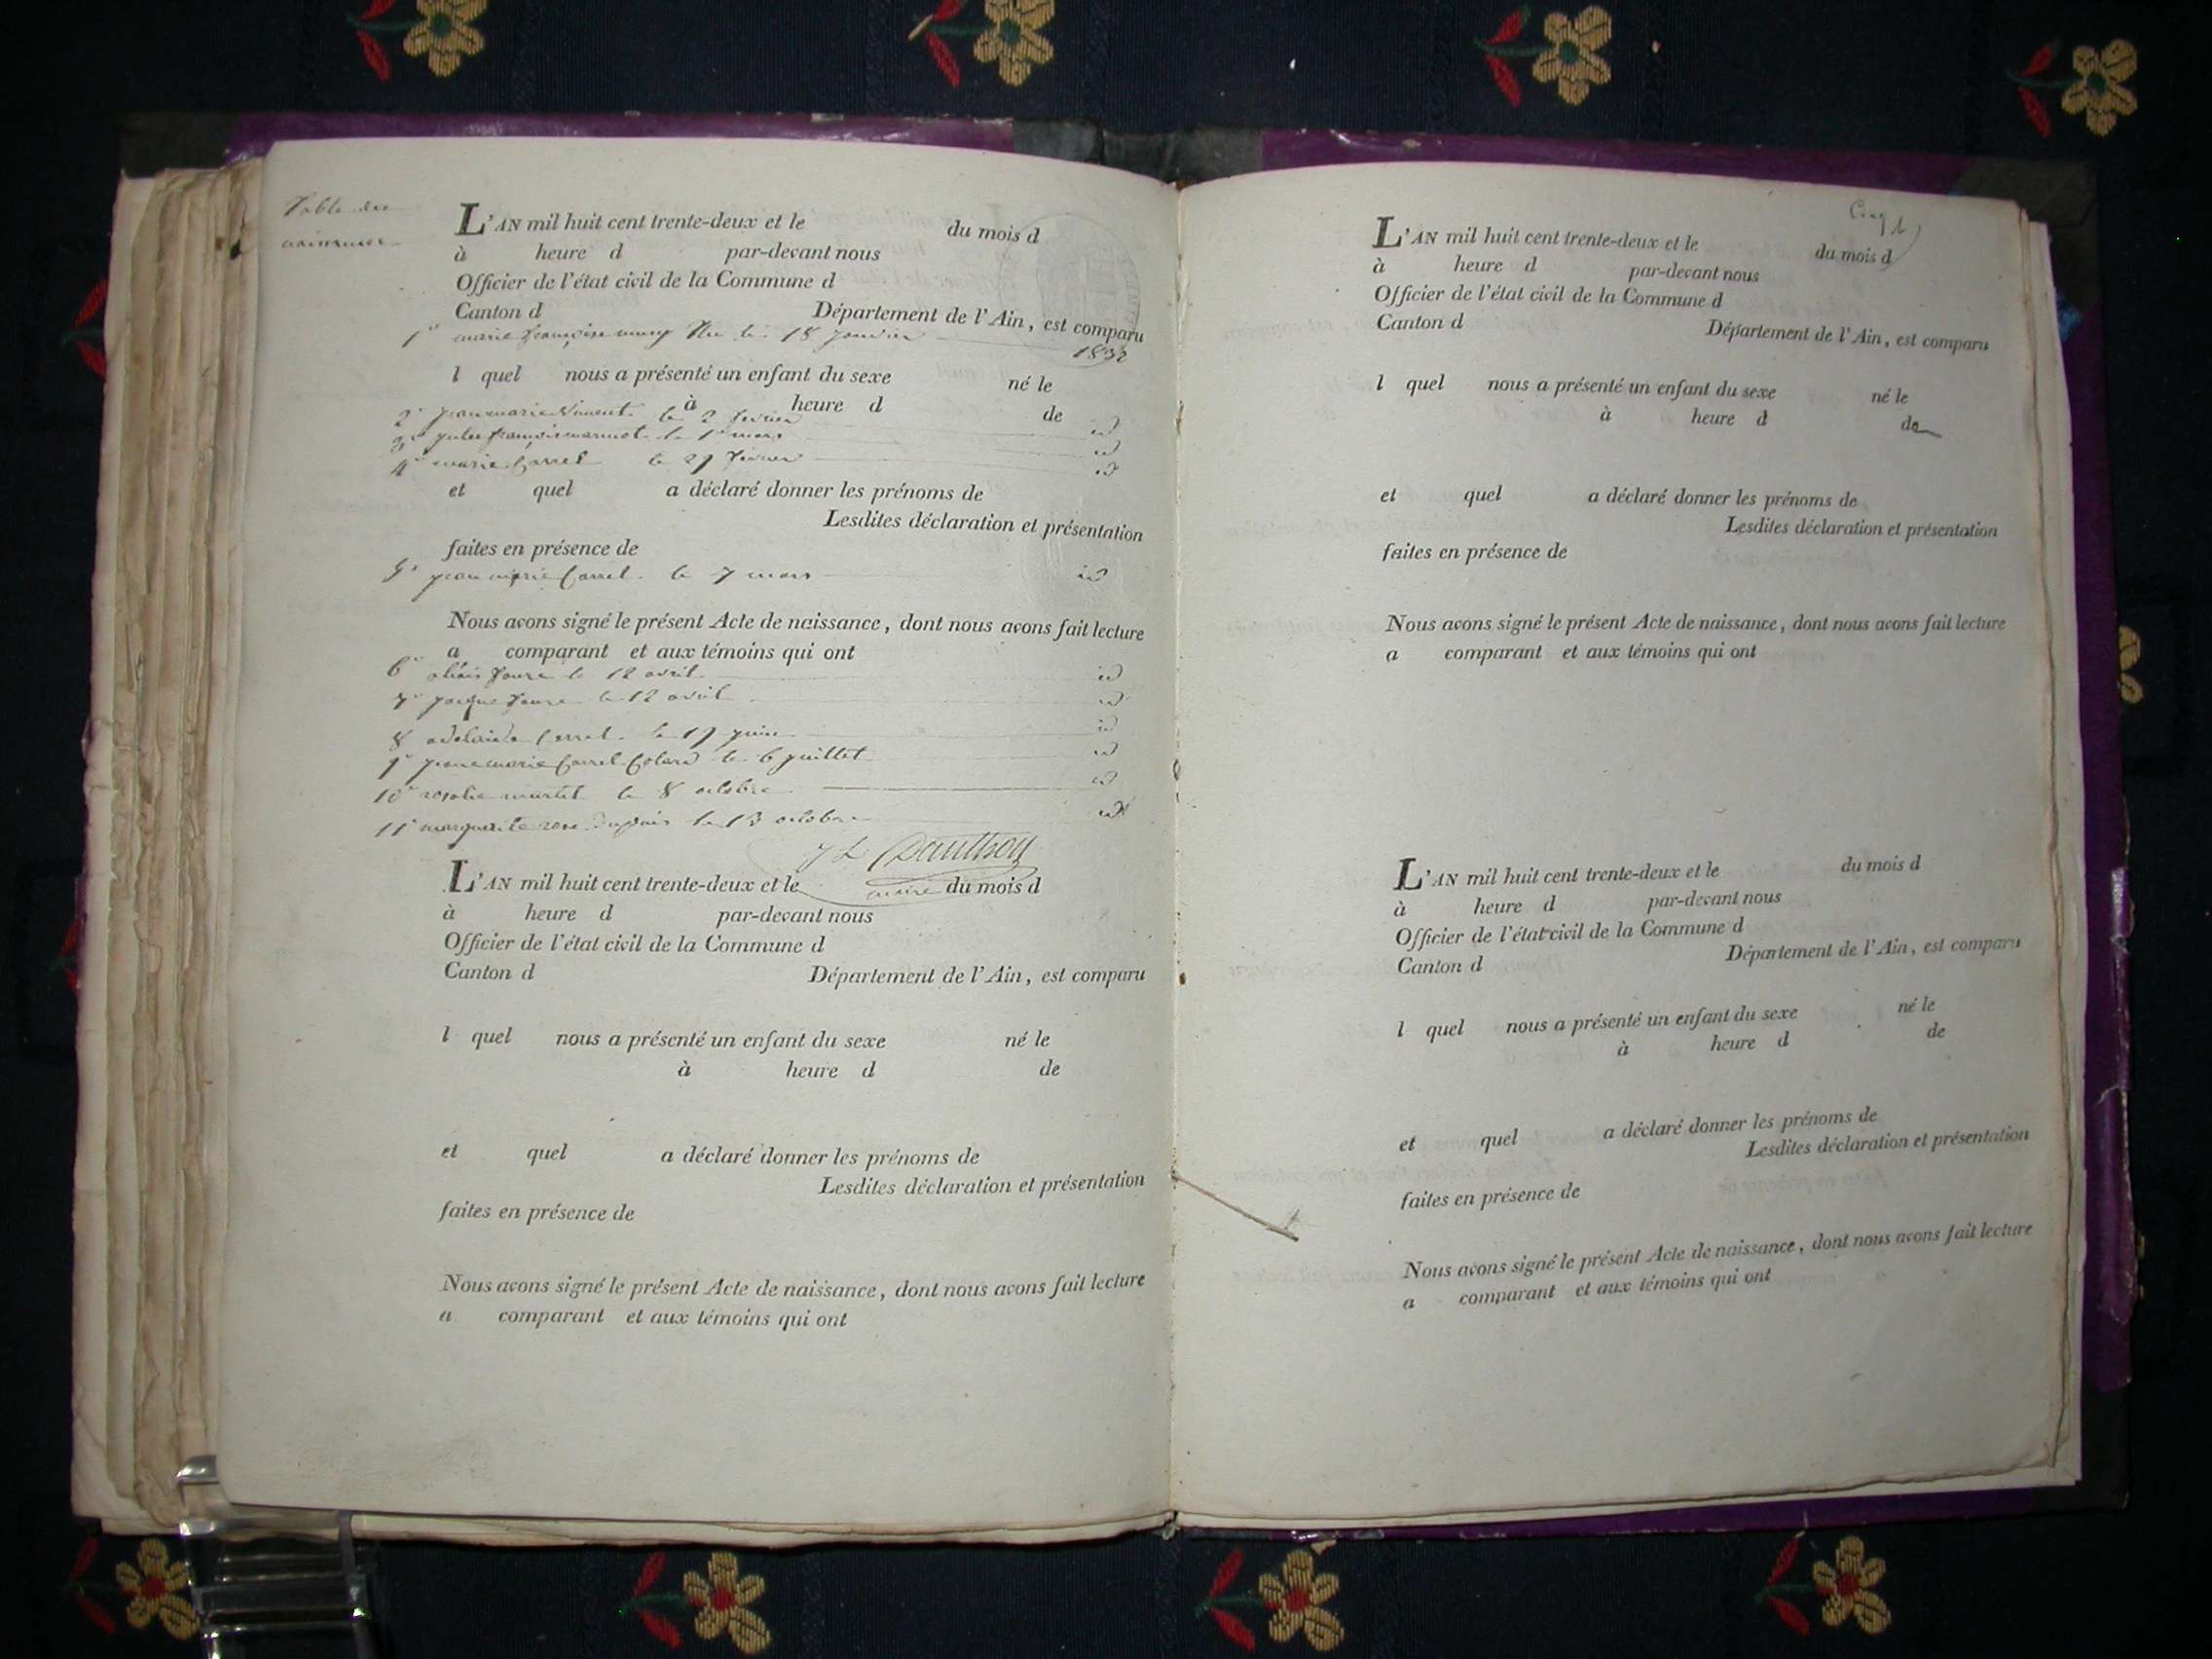 Table des
naissances
L'AN mil huit cent trente-deux et le du mois d
à heure d par-devant nous
Officier de l'état civil de la Commune d
Canton d Département de l'Ain, est comparu
1° marie françoise Née le 18 janvier 1832
l quel nous a présenté un enfant du sexe né le
à heure d de
2° jean marie le 2 fevrier id
3° jules françois le 1er mars id
4° marie Carrel le 29 fevrier id
et quel a déclaré donner les prénoms de
Lesdites déclaration et présentation
faites en présence de
5° jean marie Carrel le 7 mars id
Nous avons signé le présent Acte de naissance, dont nous avons fait lecture
a comparant et aux témoins qui ont
6° le 12 avril id
7° le 12 avril id
8 adelaide Carrel le 19 juin id
9° marie Carrel le 6 juillet id
10° rosalie le 8 octobre id
11° marguerite rose le 13 octobre id
maire
L'AN mil huit cent trente-deux et le du mois d
à heure d par-devant nous
Officier de l'état civil de la Commune d
Canton d Département de l'Ain, est comparu
l quel nous a présenté un enfant du sexe né le
à heure d de
et quel a déclaré donner les prénoms de
Lesdites déclaration et présentation
faites en présence de
Nous avons signé le présent Acte de naissance, dont nous avons fait lecture
a comparant et aux témoins qui ont
L'AN mil huit cent trente-deux et le du mois d
à heure d par-devant nous
Officier de l'état civil de la Commune d
Canton d Département de l'Ain, est comparu
l quel nous a présenté un enfant du sexe né le
à heure d de
et quel a déclaré donner les prénoms de
Lesdites déclaration et présentation
faites en présence de
Nous avons signé le présent Acte de naissance, dont nous avons fait lecture
a comparant et aux témoins qui ont
L'AN mil huit cent trente-deux et le du mois d
à heure d par-devant nous
Officier de l'état civil de la Commune d
Canton d Département de l'Ain, est comparu
l quel nous a présenté un enfant du sexe né le
à heure d de
et quel a déclaré donner les prénoms de
Lesdites déclaration et présentation
faites en présence de
Nous avons signé le présent Acte de naissance, dont nous avons fait lecture
a comparant et aux témoins qui ont